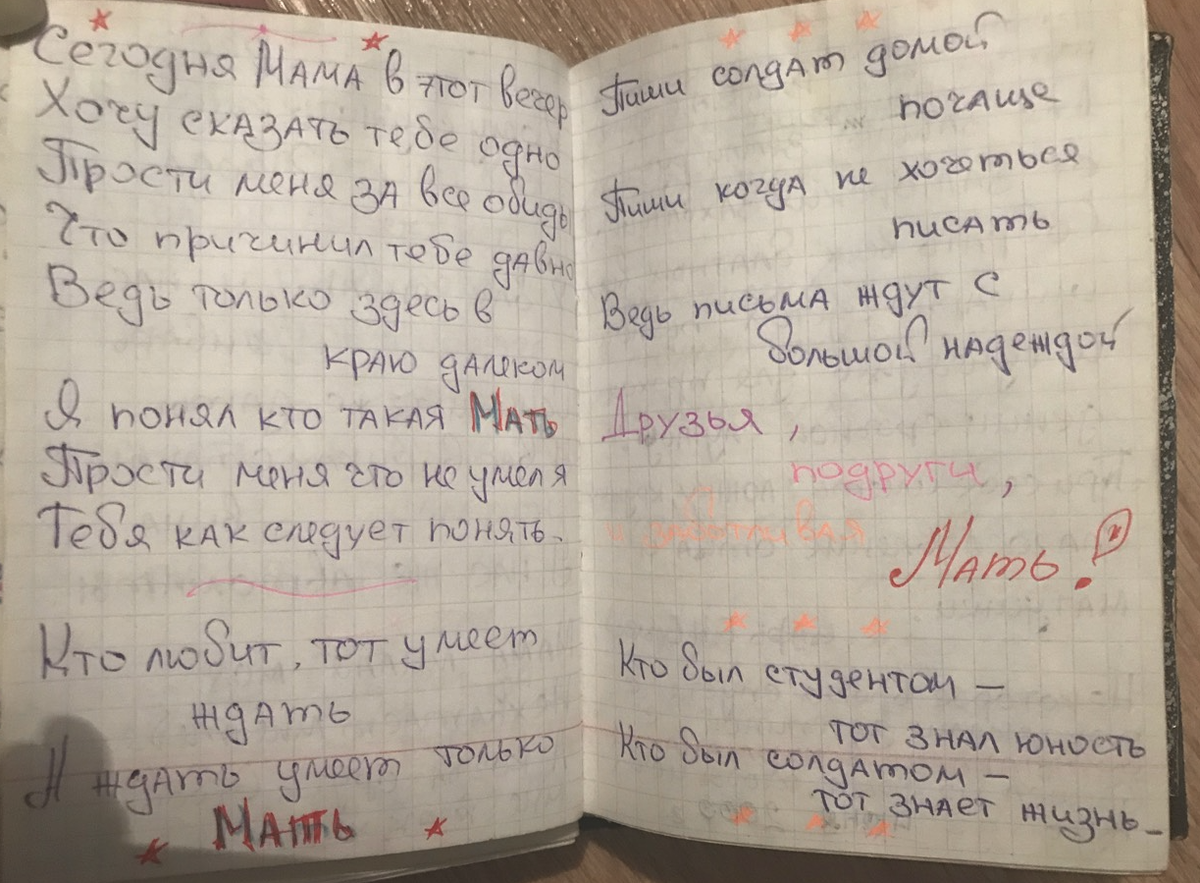 Сегодня Мама в этот вечер
Хочу сказать тебе одно
Прости меня за все обиды
Что причинил тебе давно
Ведь только здесь в
краю далеком
Я понял кто такая Мать
Прости меня что не умел я
Тебя как следует понять.
Кто любит, тот умеет
ждать
А ждать умеет только
Мать
Пиши солдат домой
почаще
Пиши когда не хочеться
писать
Ведь письма ждут с
большой надеждой
Друзья,
подруги,
и заботливая
Мать!
Кто был студентом –
тот знал юность
Кто был солдатом –
тот знает жизнь